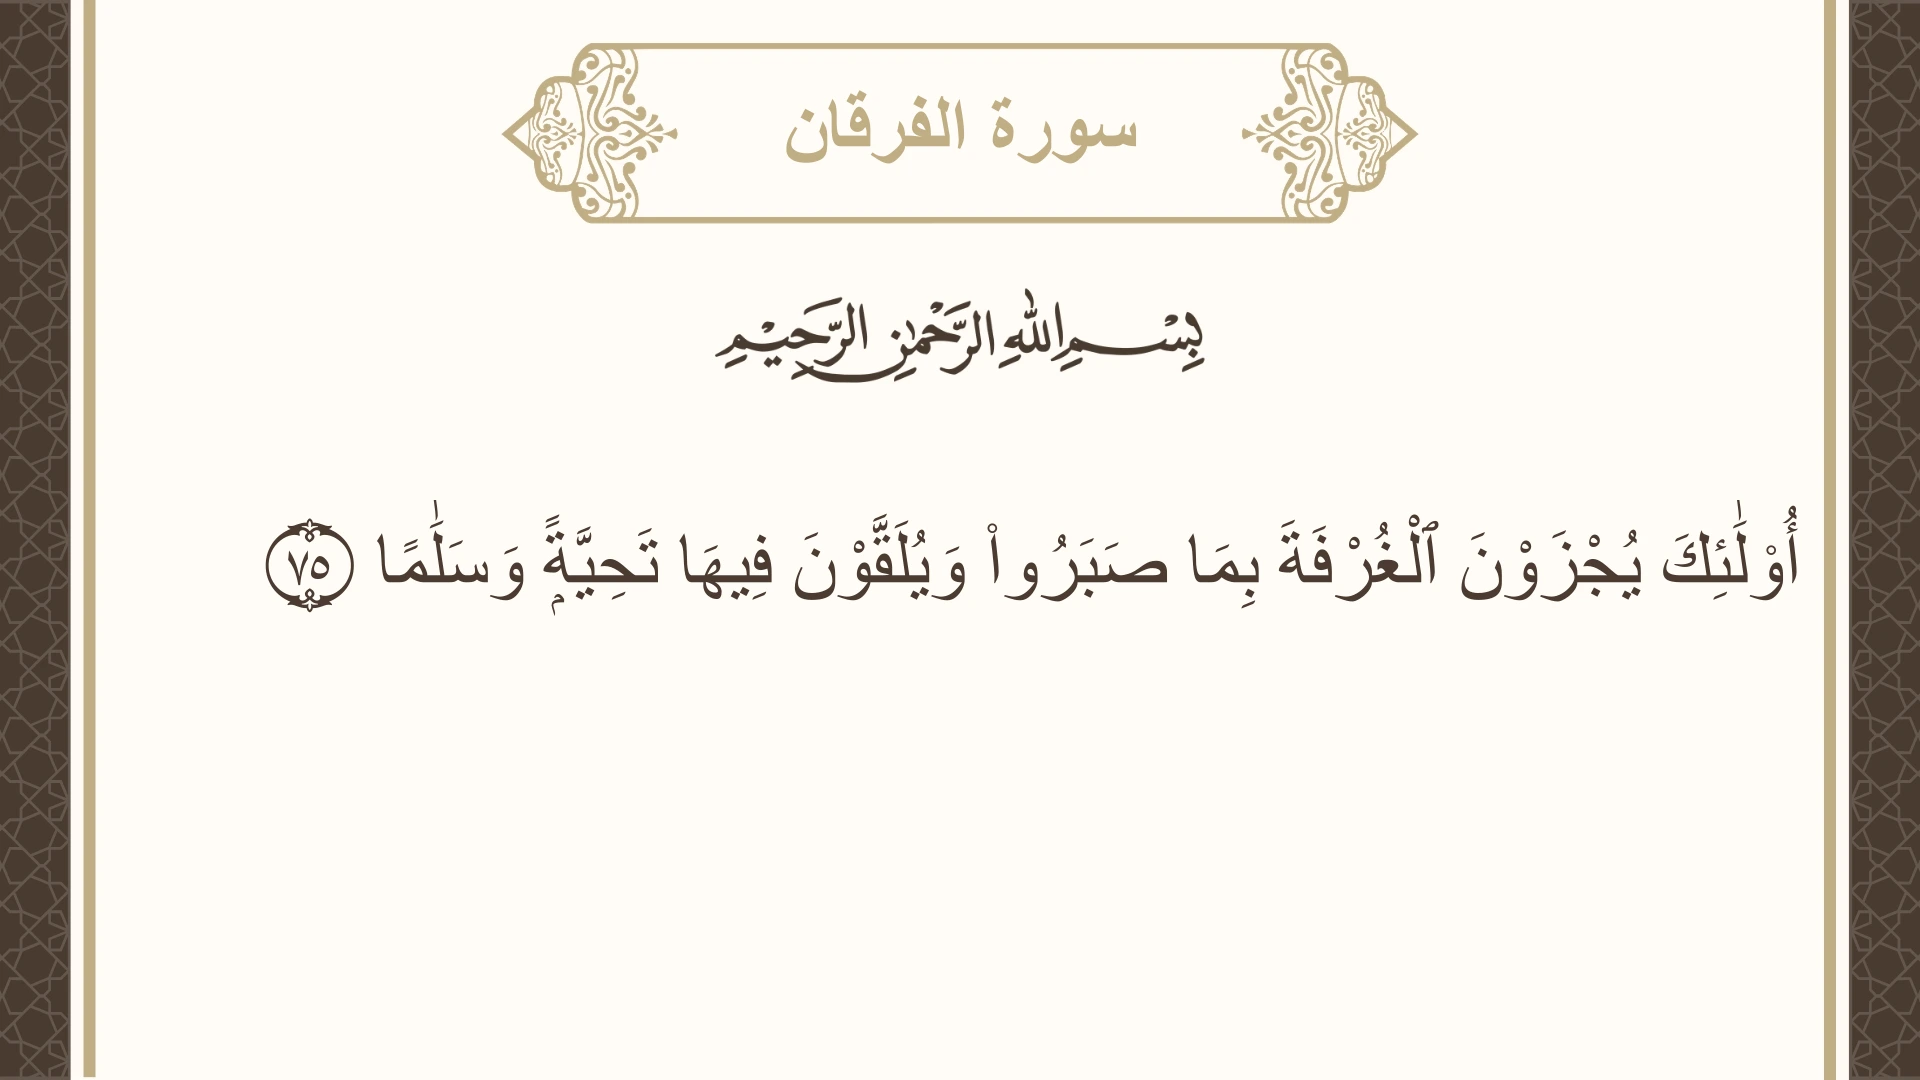 سورة الفرقان
بِسْمِ اللهِ الرَّحْمٰنِ الرَّحِيْمِ
أُو۟لَٰٓئِكَ يُجْزَوْنَ ٱلْغُرْفَةَ بِمَا صَبَرُوا۟ وَيُلَقَّوْنَ فِيهَا تَحِيَّةًۭ وَسَلَٰمًا ٧٥